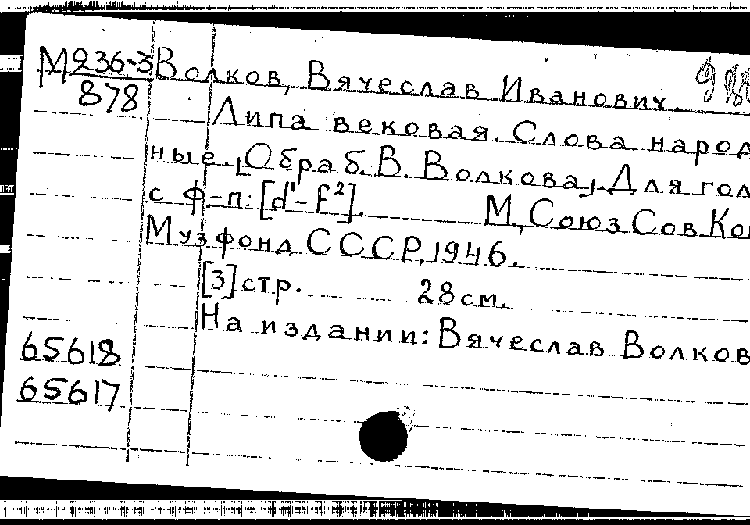 М236-3 Волков, Вячеслав Иванович
878
Липа вековая. Слова народ
ные. [Обраб. В. Волкова]. Для гол
с ф-п: [d¹-f²]. М, Союз Сов. Ком
Музфонд СССР, 1946.
[3] стр. 28 см.
На издании: Вячеслав Волков
65618
65617